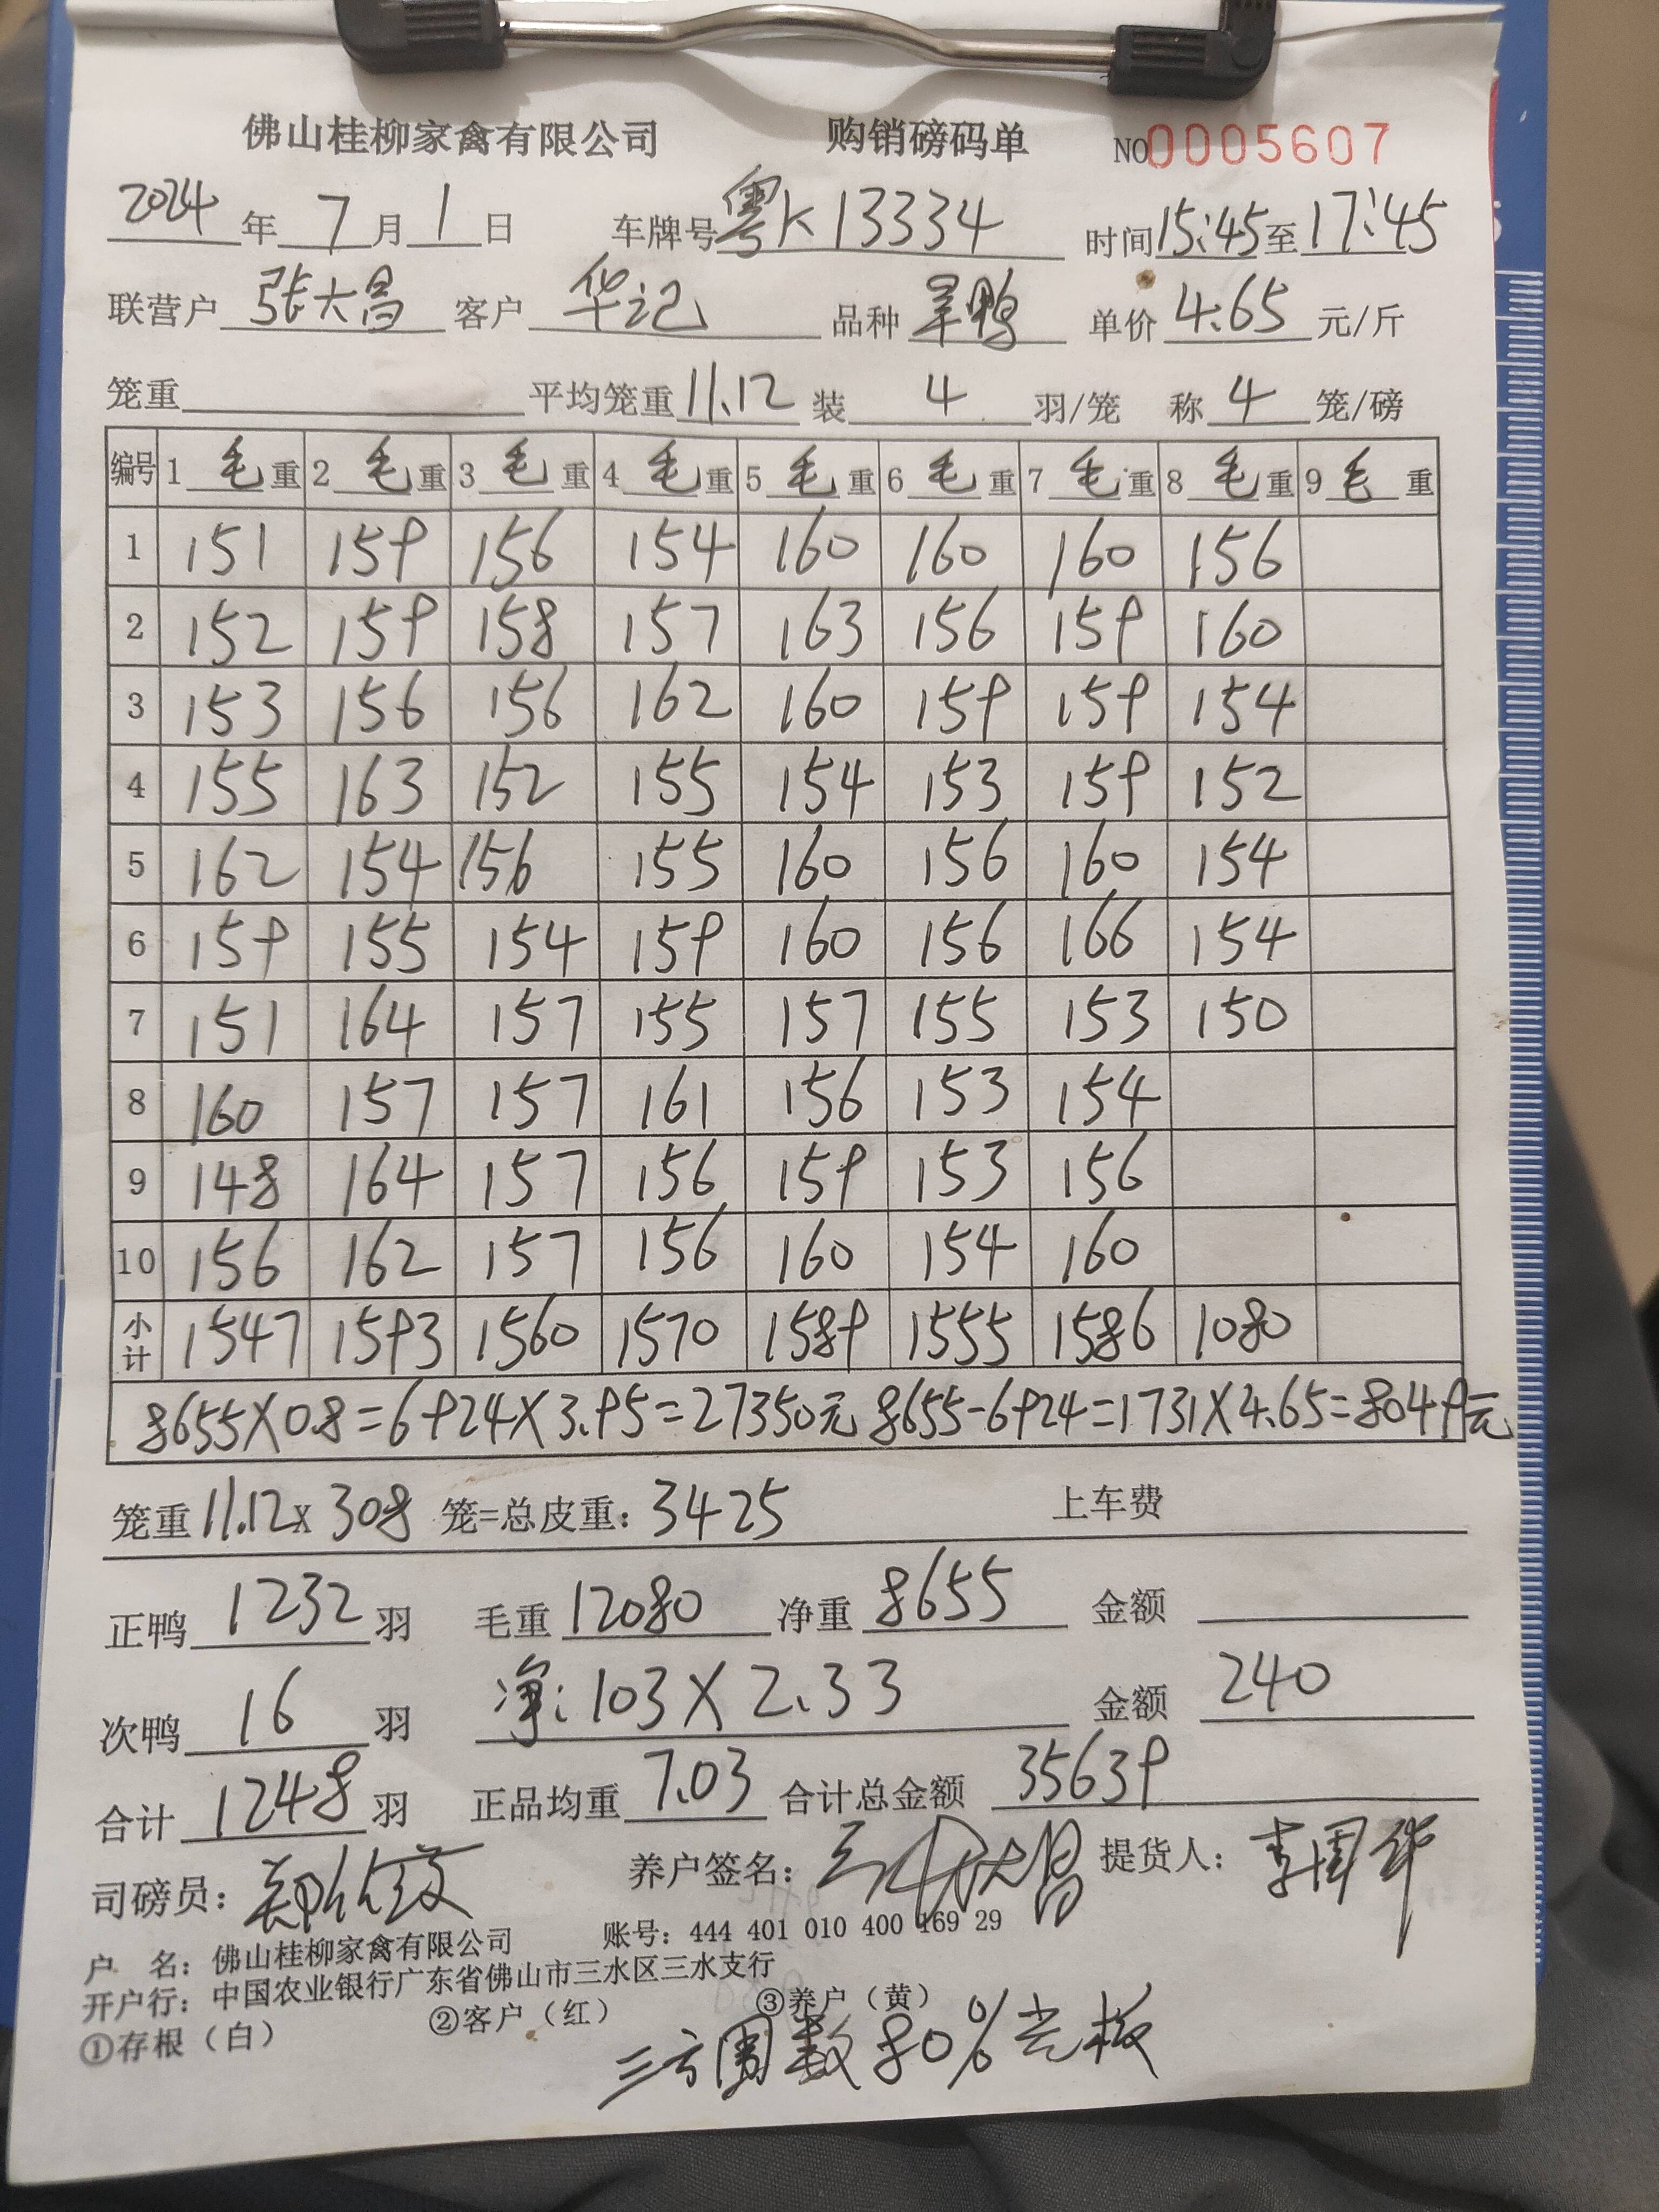 佛山桂柳家禽有限公司 购销磅码单 NO 0005607
2024 年 7 月 1 日 车牌号 粤K13334 时间 15:45 至 17:45
联营户 张大昌 客户 华记 品种 鸭 单价 4.65 元/斤
笼重 平均笼重 11.12 装 4 羽/笼 称 4 笼/磅
编号 1 毛 重 2 毛 重 3 毛 重 4 毛 重 5 毛 重 6 毛 重 7 毛 重 8 毛 重 9 毛 重
1 151 159 156 154 160 160 160 156
2 152 159 158 157 163 156 159 160
3 153 156 156 162 160 159 159 154
4 155 163 152 155 154 153 159 152
5 162 154 156 155 160 156 160 154
6 159 155 154 159 160 156 166 154
7 151 164 157 155 157 155 153 150
8 160 157 157 161 156 153 154
9 148 164 157 156 159 153 156
10 156 162 157 156 160 154 160
小计 1547 1593 1560 1570 1589 1555 1586 1080
8655X0.8=6924X3.95=27350元 8655-6924=1731X4.65=8049元
笼重 11.12x 308 笼=总皮重: 3425 上车费
正鸭 1232 羽 毛重 12080 净重 8655 金额
次鸭 16 羽 净: 103X2.33 金额 240
合计 1248 羽 正品均重 7.03 合计总金额 35639
司磅员: 养户签名: 提货人: 李国华
户 名: 佛山桂柳家禽有限公司 账号: 444 401 010 400 169 29
开户行: 中国农业银行广东省佛山市三水区三水支行
①存根(白) ②客户(红) ③养户(黄)
三方 数80%